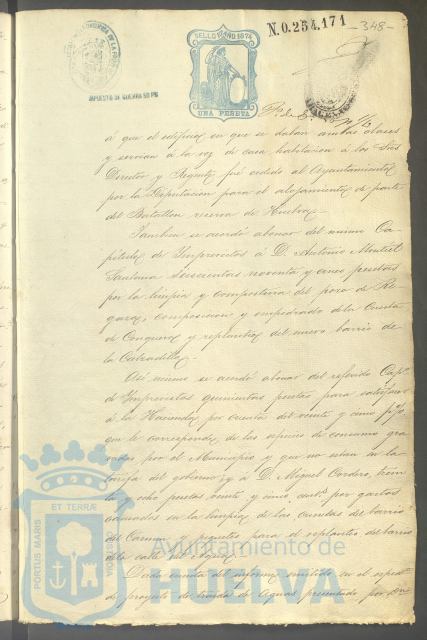 SELLO 11º AÑO 1874
UNA PESETA
N.0.254,171
-348-
IMPUESTO DE GUERRA 50 PS
á que el edificio en que se daban ambas clases
y servian á la vez de casa habitacion á los Sres
Director y Regente fué cedido al Ayuntamiento
por la Diputacion para el alojamiento de parte
del Batallon reserva de Huelva.
Tambien se acordó abonar del mismo Ca-
pítulo de Imprevistos á D. Antonio Montiel
Santana seiscientas noventa y cinco pesetas
por la limpia y compostura del pozo de Re-
garez, composicion y empedrado de la Cuesta
de Conquero y replanteo del nuevo barrio de
la Calzadilla.
Asi mismo se acordó abonar del referido Capº
de Imprevistos quinientas pesetas para satisfacer
á la Hacienda por cuenta del veinte y cinco p%
que le corresponde, de las especies de consumo gra-
vadas por el Municipio y que no estan en la
tarifa del gobierno; y á D. Miguel Cordero, trein
ta y ocho pesetas veinte y cinco cents por gastos
causados en la limpieza de las cunetas del barrio
del Carmen y piquetes para el replanteo del barrio
de la calle
Dada cuenta del informe emitido en el espedte
de proyecto de traida de aguas presentado por
PORTUS MARIS ET TERRÆ CUSTODIA
Ayuntamiento de
HUELVA